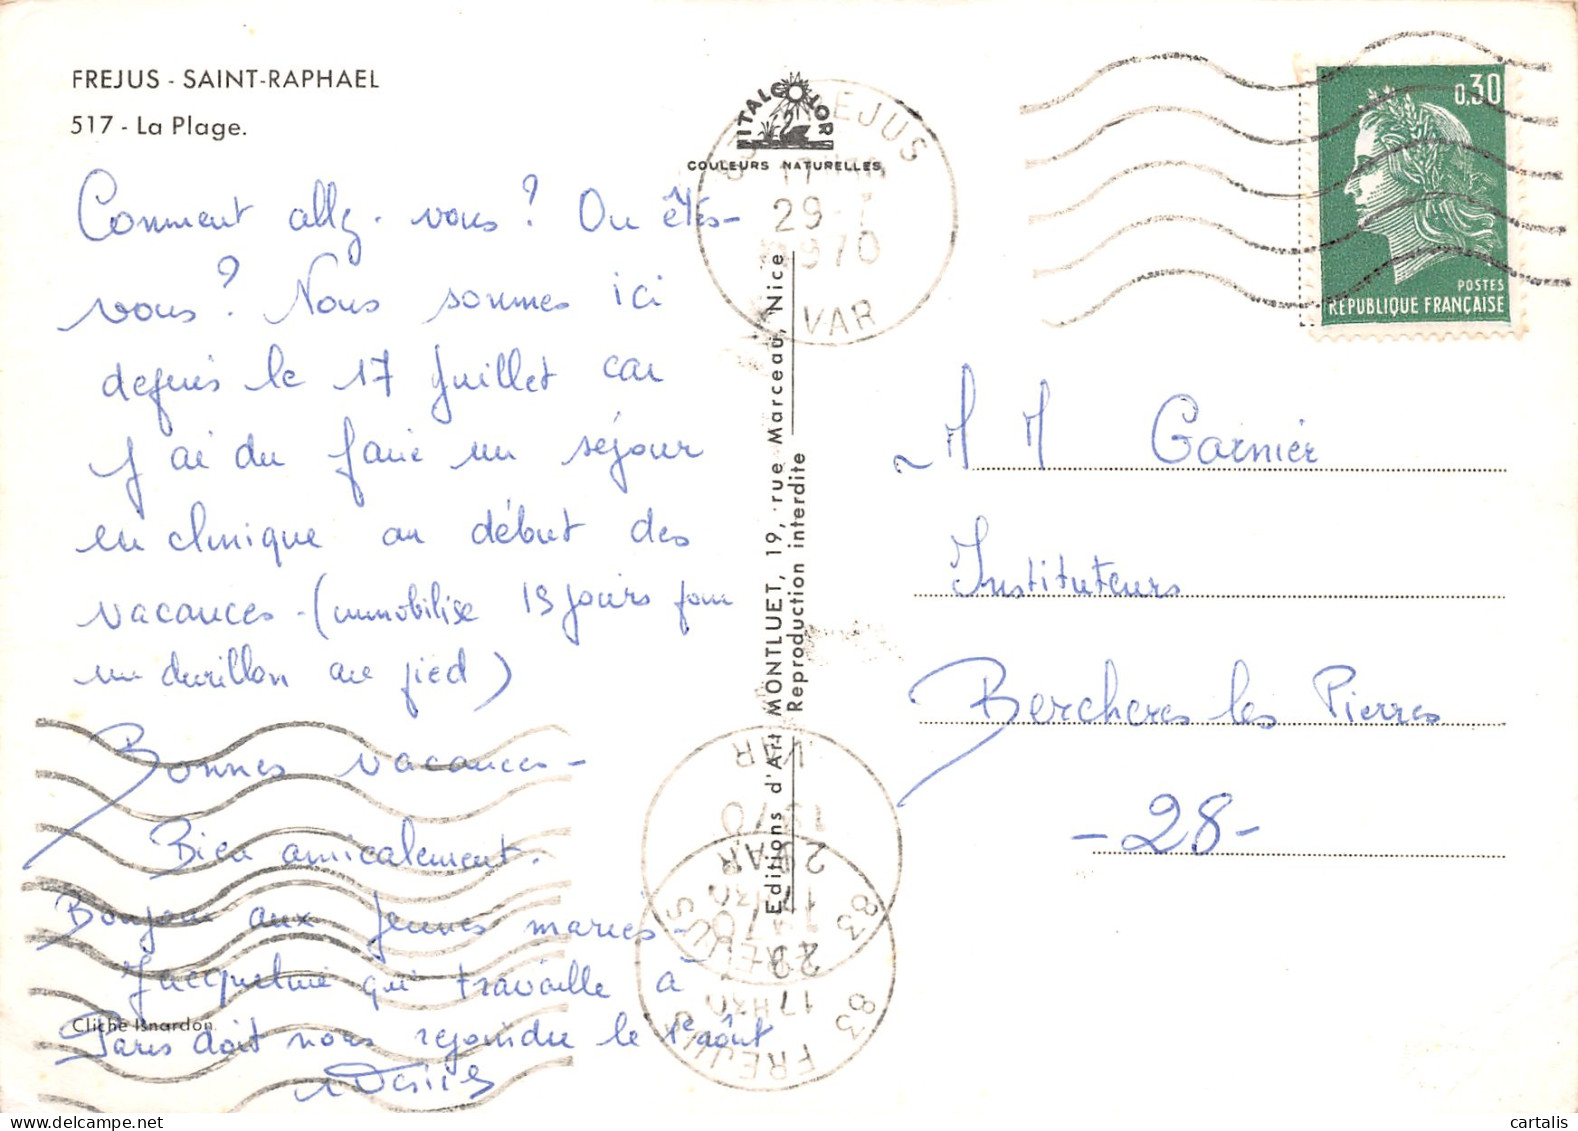 FREJUS - SAINT-RAPHAEL
517 - La Plage.
ITALCOLOR
COULEURS NATURELLES
83 FREJUS
17H30
29-7
1970
VAR
0,30
POSTES
REPUBLIQUE FRANÇAISE
Comment allez-vous? Ou êtes-
vous? Nous sommes ici
depuis le 17 Juillet car
j'ai du faire un séjour
en clinique au début des
vacances - (immobilise 15 jours pour
un durillon au pied)
Bonnes vacances -
Bien amicalement.
Bonjour aux jeunes maries -
Jacqueline qui travaille à
Paris doit nous rejoindre le 1er août
Cliché Isnardon
Editions d'Art MONTLUET, 19, rue Marceau, Nice
Reproduction interdite
M M Garnier
Instituteurs
Bercheres les Pierres
- 28 -
VAR
1970
29-7
17H30
83 FREJUS
VAR
1970
29-7
17H30
83 FREJUS
cartalis
delcampe.net